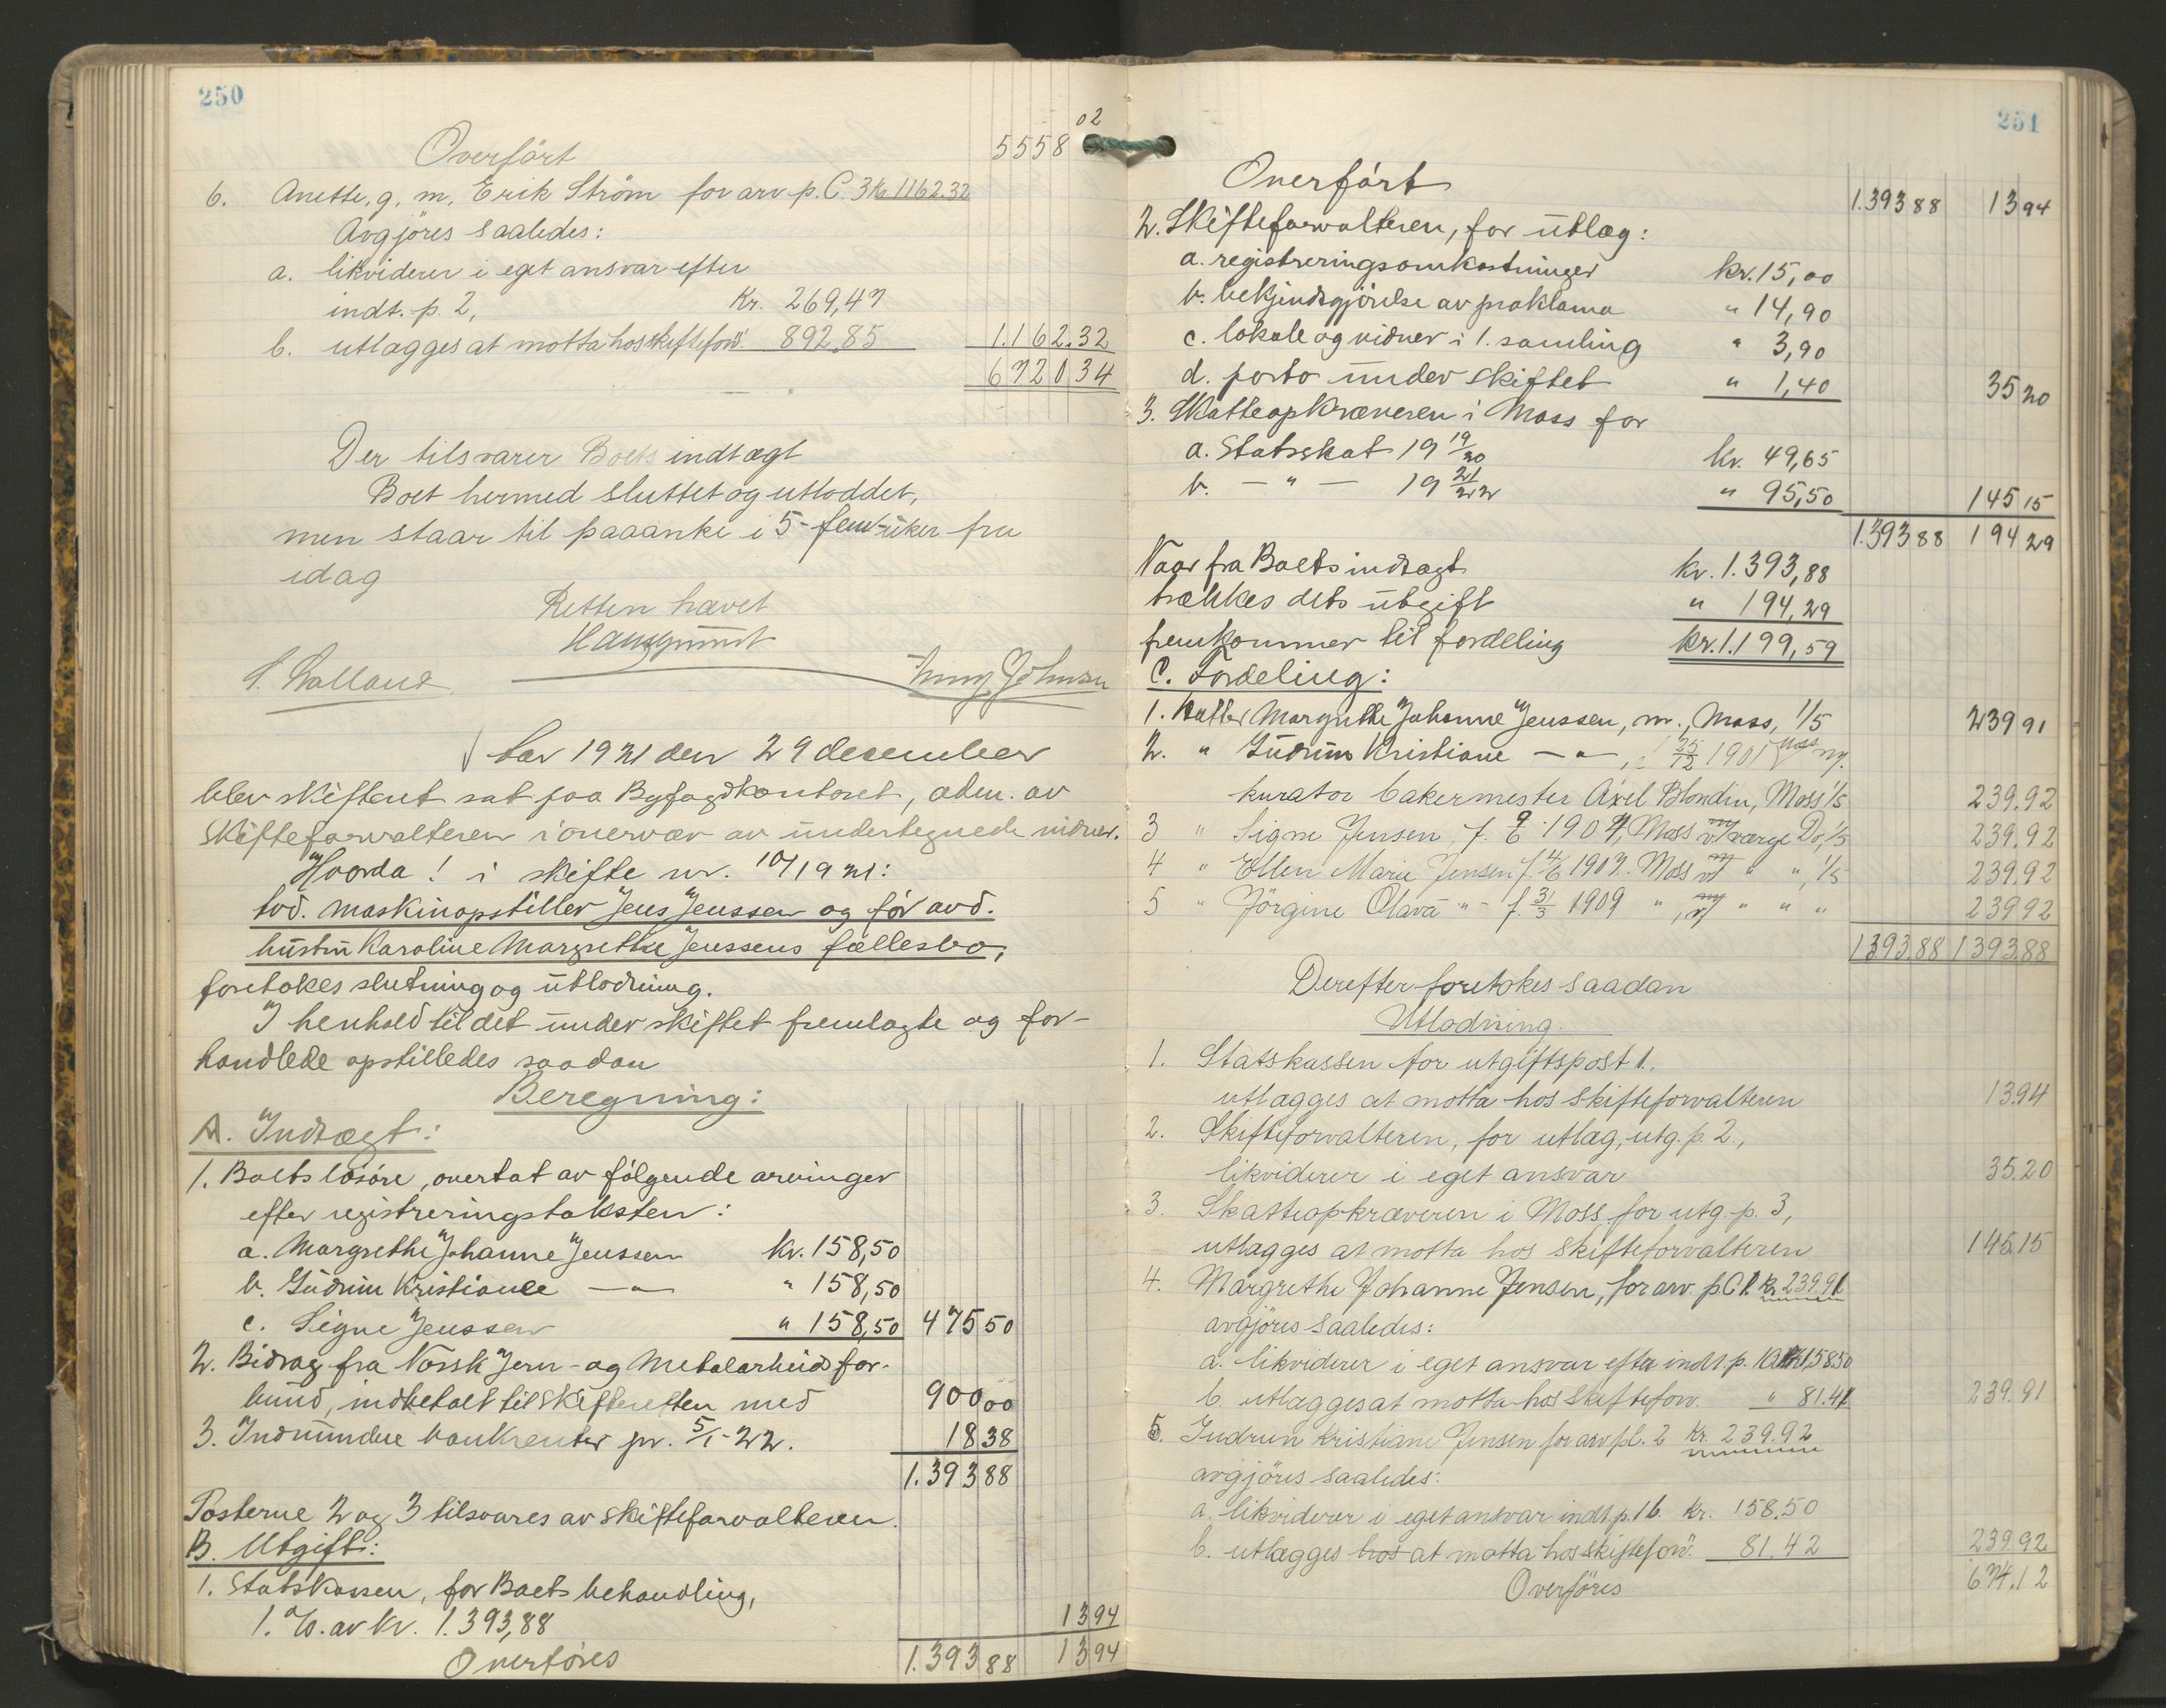 250
Overført 5558 02
6. Anette, g. m. Erik Ström for arv p. C. 3 Kr. 1162.32
Avgjöres saaledes:
a. likviderer i eget ansvar efter
indt. p. 2, Kr. 269,47
b. utlægges at motta hos skifteforv. 892,85 1.162.32
672034
Der tilsvarer Boets indtægt
Boet hermed sluttet og utloddet,
men staar til paaanke i 5-fem-uker fra
idag
Retten hævet
Der 1921 den 29 december
blev skifteret sat paa Byfogdkontoret, adm. av
skifteforvalteren i overvær av undertegnede vidner.
Hvorda! i skifte nr. 10/1921:
avd. maskinopstiller Jens Jenssen og før avd.
hustru Karoline Margrethe Jenssens fællesbo,
foretokes slutning og utlodning.
I henhold til det under skiftet fremlagte og for-
handlede opstilledes saadan
Beregning:
A. Indtægt:
1. Boets løsøre, overtat av følgende arvinger
efter registreringstaksten:
a. Margrethe Johanne Jenssen kr. 158,50
b. Gudrun Kristiane — " — " 158,50
c. Signe Jenssen " 158,50 475 50
2. Bidrag fra Norsk Jern- og Metalarbeidsfor-
bund, indbetalt til skifteretten med 900 00
3. Indvundne bankrenter pr. 5/1-22. 18 38
1.393 88
Posterne 2 og 3 tilsvares av skifteforvalteren.
B. Utgift:
1. Statskassen, for Boets behandling,
1. % av kr. 1.393,88 13 94
Overføres 1.393 88 13 94
251
Overført 1.393 88 13 94
2. Skifteforvalteren, for utlæg:
a. registreringsomkostninger kr. 15,00
b. bekjendtgjörelse av proklama " 14,90
c. lokale og vidner i 1. samling " 3,90
d. porto under skiftet " 1,40 35 20
3. Skatteopkræveren i Moss for
a. Statsskat 19 19/20 kr. 49,65
b. — " — 19 21/22 " 95,50 145 15
1.393 88 194 29
Naar fra Boets indtægt kr. 1.393,88
trækkes dets utgift " 194,29
fremkommer til fordeling kr. 1.199,59
C. Fordeling:
1. Datter Margrethe Johanne Jenssen, m., Moss, 1/5 239 91
2. " Gudrun Kristiane — " —, 1901 Moss m.
kurator bakermester Axel Blondin, Moss 1/5 239.92
3 " Signe Jensen, f. 9/6 1904, Moss v/ værge Do, 1/5 239.92
4 " Ellen Marie Jensen f. 4/6 1907. Moss v/ " ", 1/5 239.92
5 " Jörgine Olava " - f. 31/3 1909 ", v/ " " " 239 92
1393.88 1393.88
Derefter foretokes saadan
Utlodning.
1. Statskassen for utgiftspost 1.,
utlægges at motta hos skifteforvalteren 13.94
2. Skifteforvalteren, for utlæg, utg. p. 2.,
likviderer i eget ansvar 35.20
3. Skatteopkræveren i Moss for utg. p. 3,
utlægges at motta hos skifteforvalteren 145.15
4. Margrethe Johanne Jensen, for arv. p. C 1. kr 239.91
avgjöres saaledes:
a. likviderer i eget ansvar efter indt. p. 1a kr 158.50
b. utlægges at motta hos skifteforv. " 81.41 239.91
5. Gudrun Kristiane Jensen for arv p C. 2 Kr. 239.92
avgjöres saaledes:
a. likviderer i eget ansvar indt. p. 1 b. kr. 158.50
b. utlægges hos at motta hos skifteforv. 81.42 239.92
Overföres 674.12